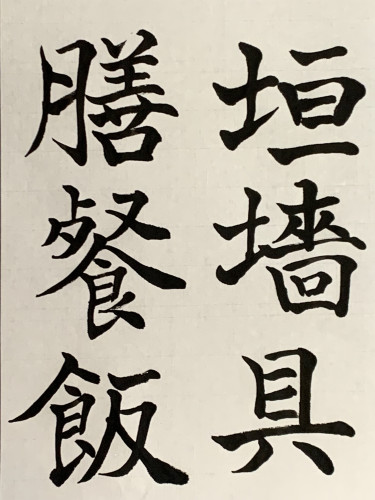 垣墻具
膳餐飯